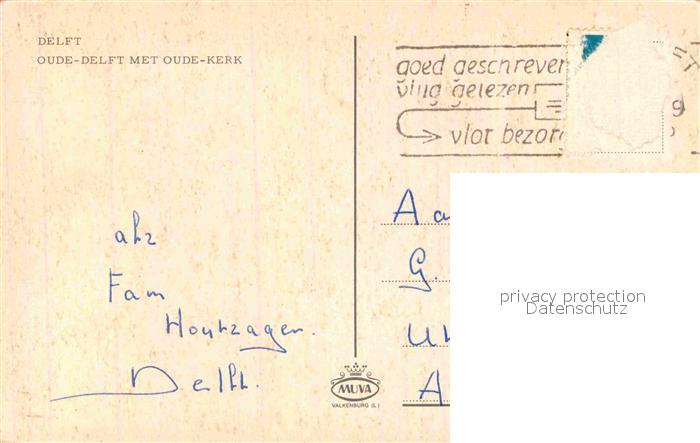 DELFT
OUDE-DELFT MET OUDE-KERK
goed geschreven
vlug gelezen
vlot bezor
A a
G.
afz
Fam
Houtzager.
Delft.
MUVA
VALKENBURG (L.)
privacy protection
Datenschutz